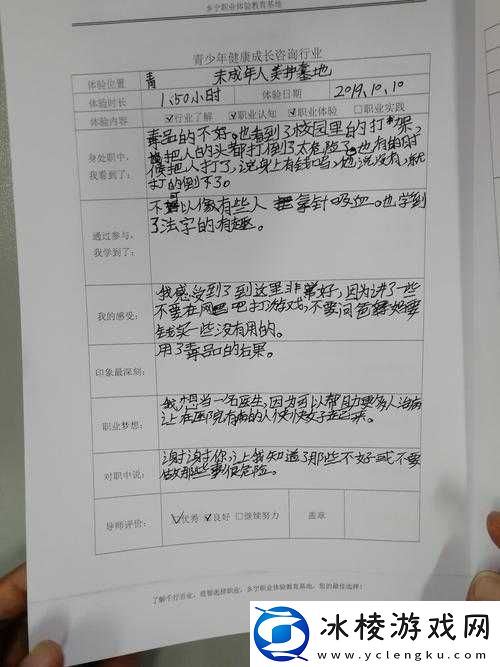 乡宁职业体验教育基地
青少年健康成长咨询行业
体验位置 青 未成年人关护基地
体验时长 1.50小时 体验日期 2019.10.10
体验内容 ☑行业了解 ☑职业认知 ☑职业体验 □职业实践
身处职中,
我看到了:
毒品的不好。也看到了校园里的打架,
把人的头都打倒了太危险了。也有的时
候把人打了,说身上有钱吗,他说没有,就
打的倒下了。
通过参与,
我学到了:
不可以像有些人拿针吸血。也学到
了法字的有趣。
我的感受:
我感受到了到这里非常好,因为讲了一些
不要在网吧打游戏,不要问爸爸妈妈要
钱买一些没有用的。
印象最深刻:
用了毒品的后果。
职业梦想:
我想当一名医生,因为可以帮助更多人治病
让在医院有病的人快快好起来。
对职中说:
谢谢你,让我知道了那些不好或不要
做那些事很危险。
导师评价: ☑优秀 ☑良好 □继续努力 盖章
了解千行百业,理智选择职业,乡宁职业体验教育基地,您的最佳选择!
冰棱游戏网
www.yclengku.com